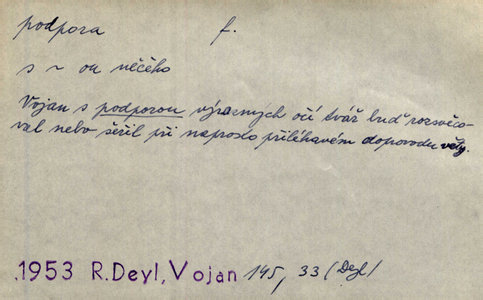 podpora f.
s ~ ou něčeho
Vojan s podporou výrazných očí tvář buď rozsvěco-
val nebo šeřil při naprosto přiléhavém doprovodu věty.
.1953 R.Deyl, Vojan 145, 33 (Deyl)